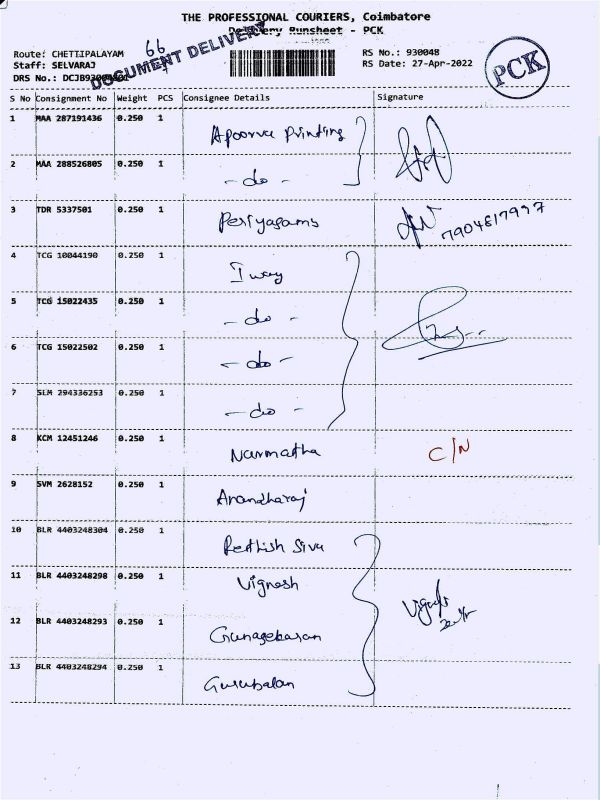 THE PROFESSIONAL COURIERS, Coimbatore
Delivery Runsheet - PCK
DOCUMENT DELIVERY
66
PCK
Route: CHETTIPALAYAM
Staff: SELVARAJ
RS No.: 930048
RS Date: 27-Apr-2022
DRS No.:
S No Consignment No Weight PCS Consignee Details Signature
1 MAA 287191436 0.250 1 Apoorva Printing
2 MAA 288526805 0.250 1 - do -
3 TDR 5337501 0.250 1 Periyasamy 7904817997
4 TCG 10044190 0.250 1 I way
5 TCG 15022435 0.250 1 - do -
6 TCG 15022502 0.250 1 - do -
7 SLM 294336253 0.250 1 - do -
8 KCM 12451246 0.250 1 Narmatha C/N
9 SVM 2628152 0.250 1 Anandharaj
10 BLR 4403248304 0.250 1 Siva
11 BLR 4403248298 0.250 1 Vignesh
12 BLR 4403248293 0.250 1 Gunasekaran
13 BLR 4403248294 0.250 1 Gurubalan